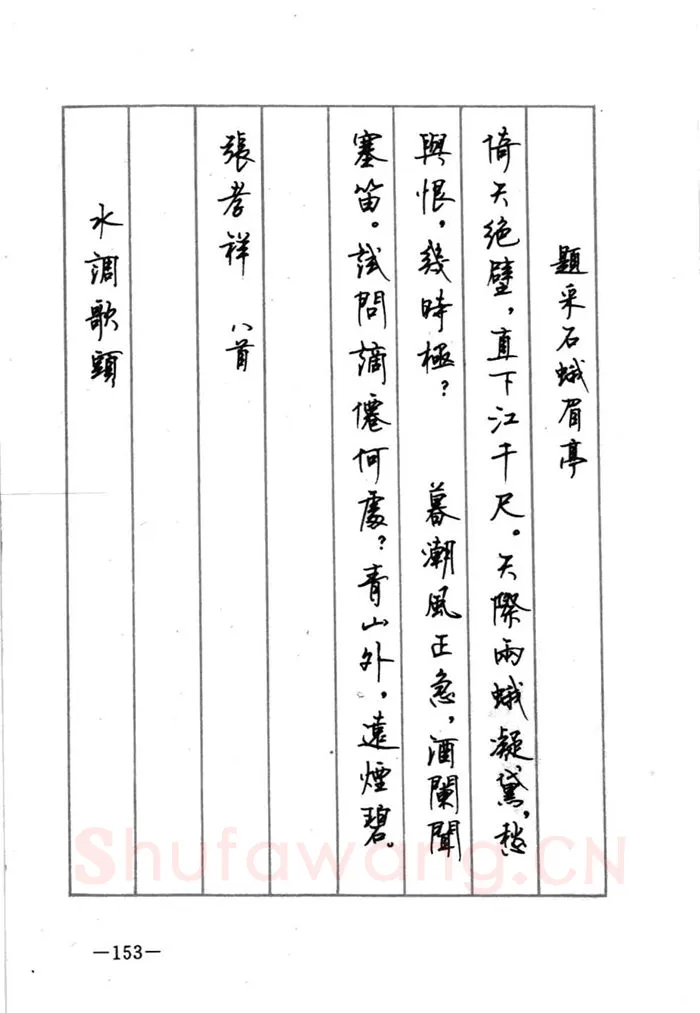 題采石蛾眉亭
倚天绝壁，直下江千尺。天際兩蛾凝黛，愁
與恨，幾時極？　暮潮風正急，酒闌聞
塞笛。試問謫僊何處？青山外，遠煙碧。
張孝祥　八首
水調歌頭
—153—
Shufawang.CN